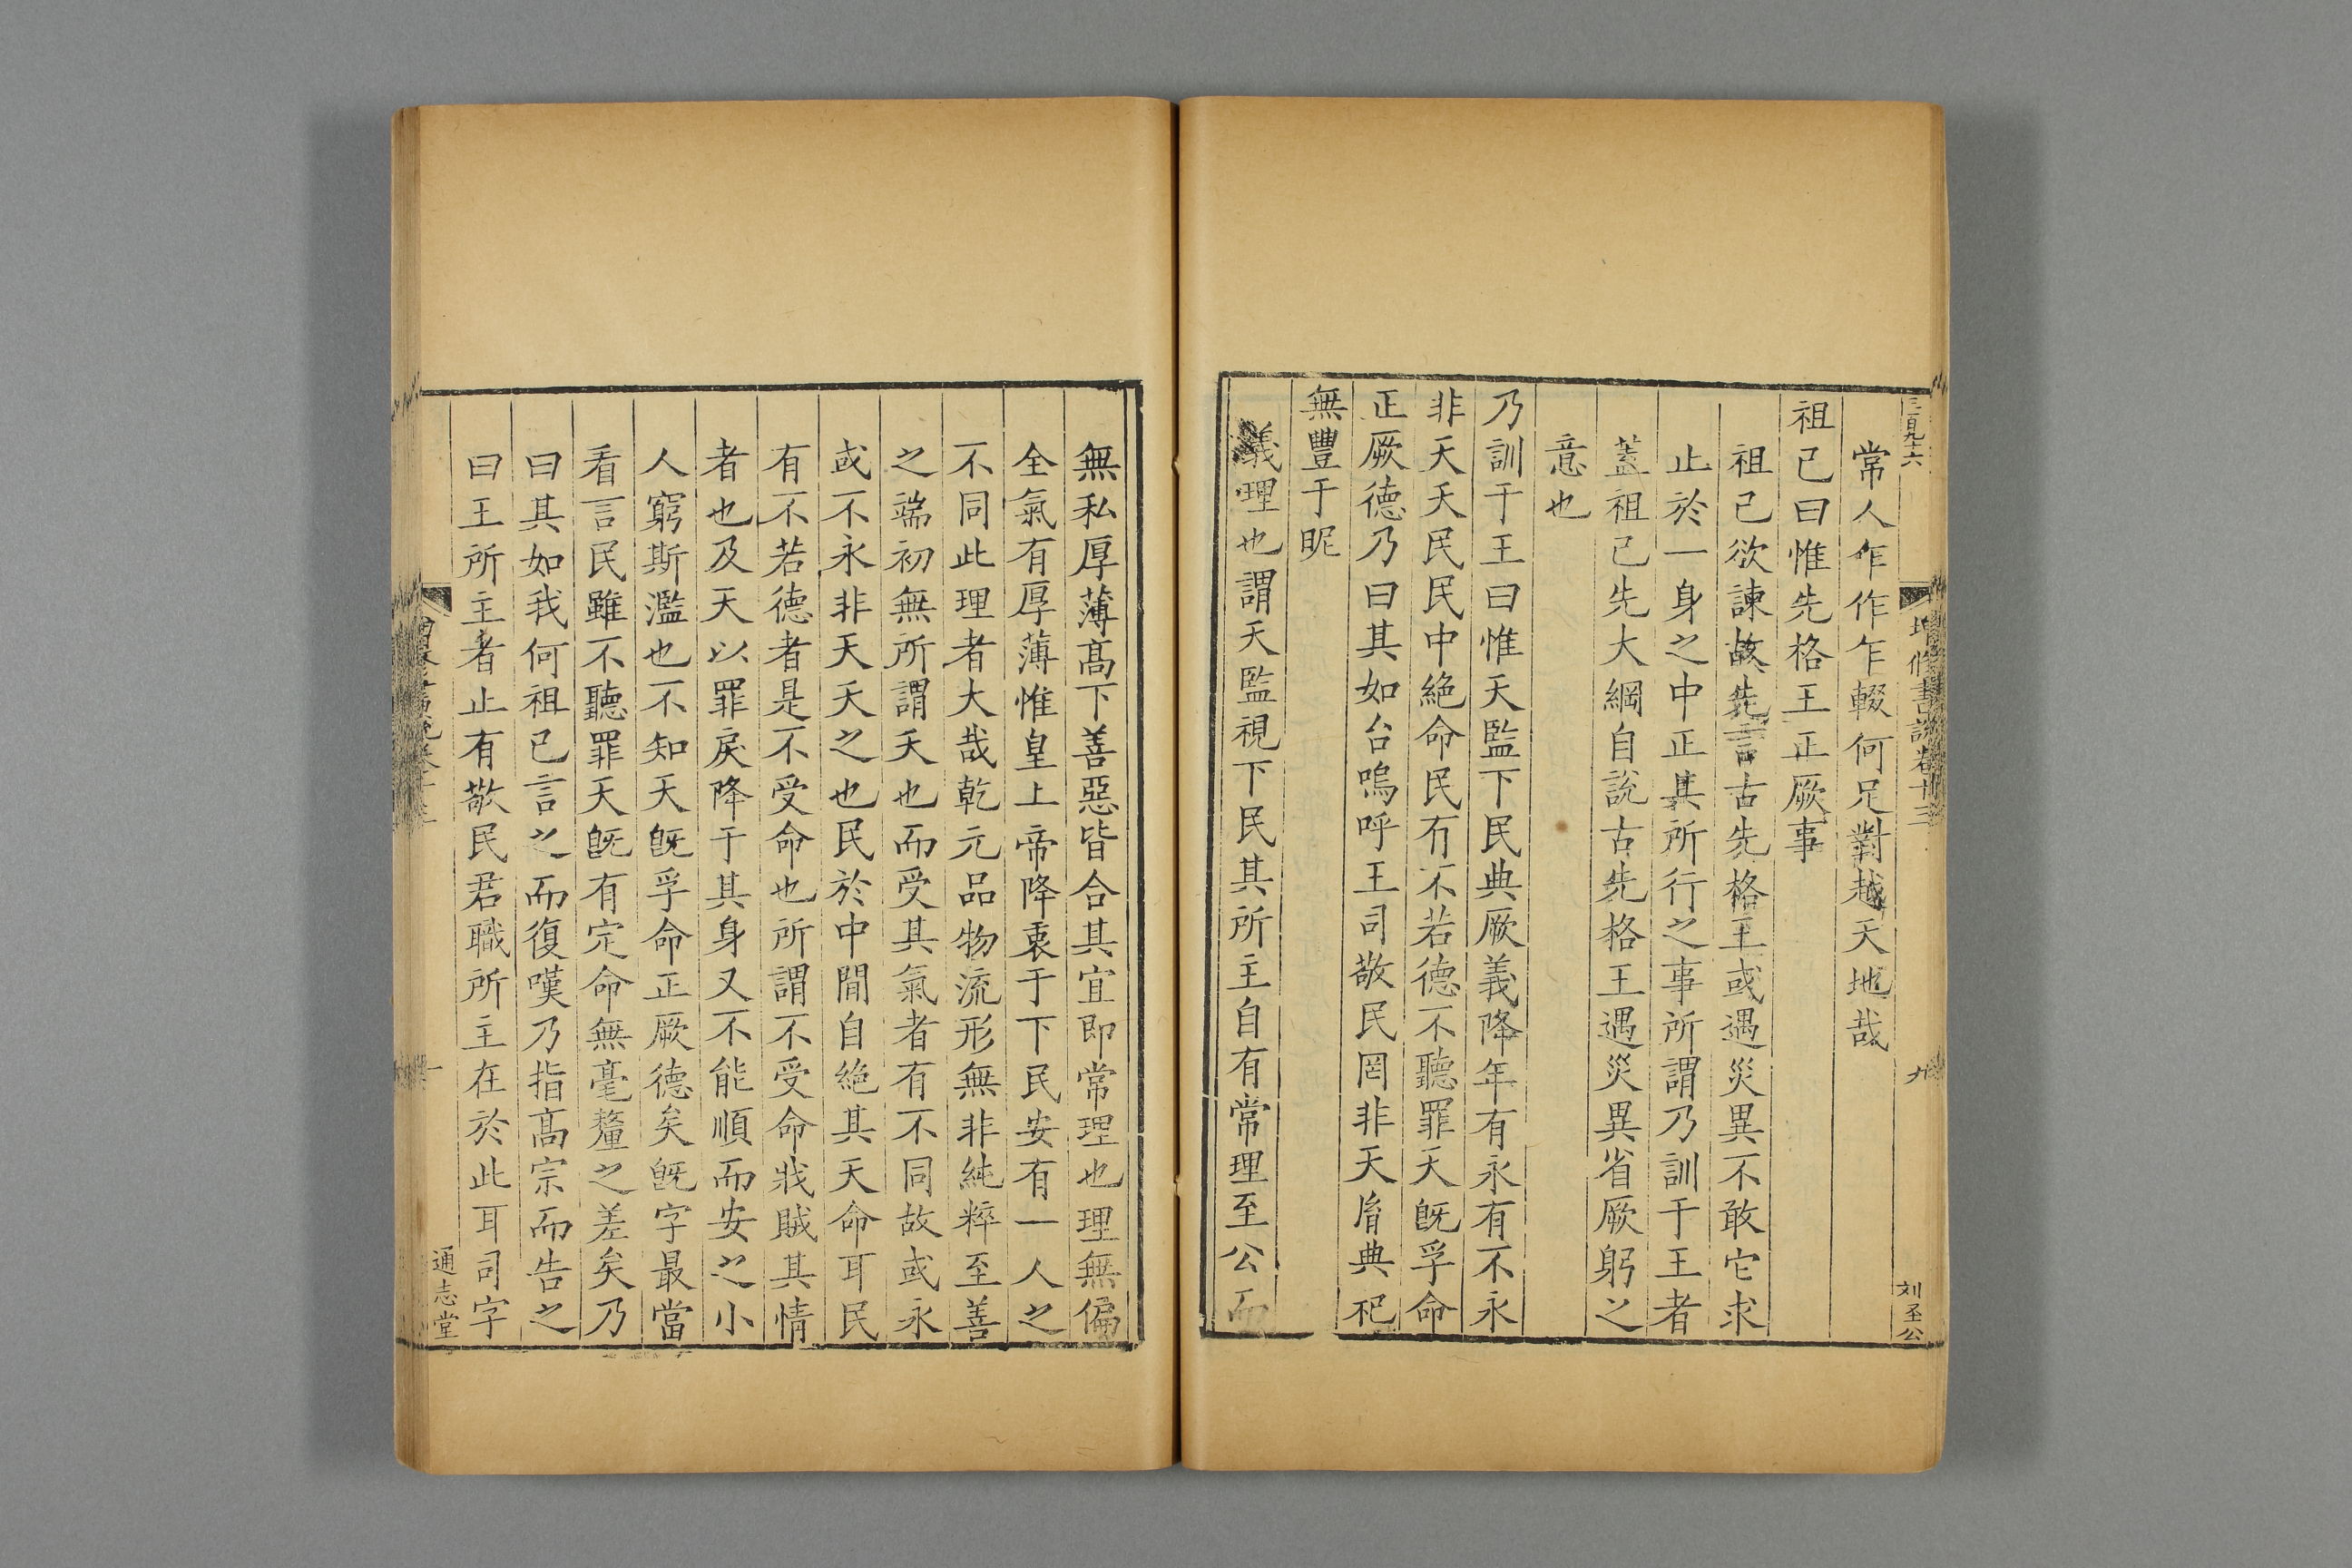 三百九十六
增修書說卷十三
九
刘圣公
常人乍作乍輟何足對越天地哉
祖己曰惟先格王正厥事
祖己欲諫故先言古先格王或遇災異不敢它求
止於一身之中正其所行之事所謂乃訓于王者
蓋祖己先大綱自說古先格王遇災異省厥躬之
意也
乃訓于王曰惟天監下民典厥義降年有永有不永
非天夭民民中絶命民有不若德不聽罪天旣孚命
正厥德乃曰其如台嗚呼王司敬民罔非天胤典祀
無豐于昵
義理也謂天監視下民其所主自有常理至公而
無私厚薄高下善惡皆合其宜卽常理也理無偏
全氣有厚薄惟皇上帝降衷于下民安有一人之
不同此理者大哉乾元品物流形無非純粹至善
之端初無所謂夭也而受其氣者有不同故或永
或不永非天夭之也民於中間自絶其天命耳民
有不若德者是不受命也所謂不受命戕賊其情
者也及天以罪戾降于其身又不能順而安之小
人窮斯濫也不知天旣孚命正厥德矣旣字最當
看言民雖不聽罪天旣有定命無毫釐之差矣乃
曰其如我何祖己言之而復嘆乃指高宗而告之
曰王所主者止有敬民君職所主在於此耳司字
通志堂